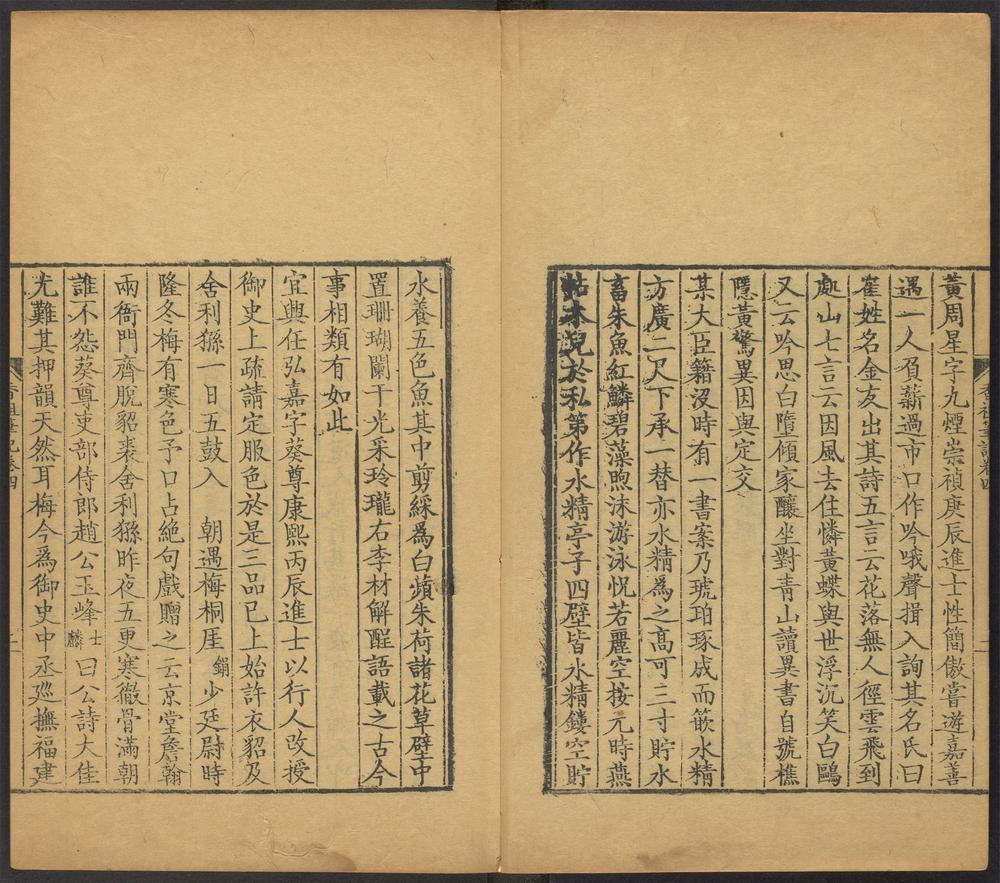 黄周星字九煙崇禎庚辰進士性簡傲嘗遊嘉善
遇一人負薪過市口作吟哦聲揖入詢其名氏曰
崔姓名金友出其詩五言云花落無人徑雲飛到
處山七言云因風去住憐黄蝶與世浮沉笑白鷗
又云吟思白墮傾家釀坐對靑山讀異書自號樵
隱黄驚異因與定交
某大臣籍沒時有一書案乃琥珀琢成而嵌水精
方廣二尺下承一替亦水精爲之高可三寸貯水
畜朱魚紅鱗碧藻喣沫游泳怳若麗空按元時燕
帖木兒於私第作水精亭子四壁皆水精鏤空貯
水養五色魚其中剪綵爲白蘋朱荷諸花草壁中
置珊瑚闌干光采玲瓏右李材解酲語載之古今
事相類有如此
宜興任弘嘉字葵尊康熙丙辰進士以行人改授
御史上疏請定服色於是三品已上始許衣貂及
舍利猻一日五鼓入 朝遇梅桐厓鋗少廷尉時
隆冬梅有寒色予口占絶句戲贈之云京堂詹翰
兩衙門齊脫貂裘舍利猻昨夜五更寒徹骨滿朝
誰不怨葵尊吏部侍郎趙公玉峰士麟曰公詩大佳
尤難其押韻天然耳梅今爲御史中丞巡撫福建
香祖筆記卷四